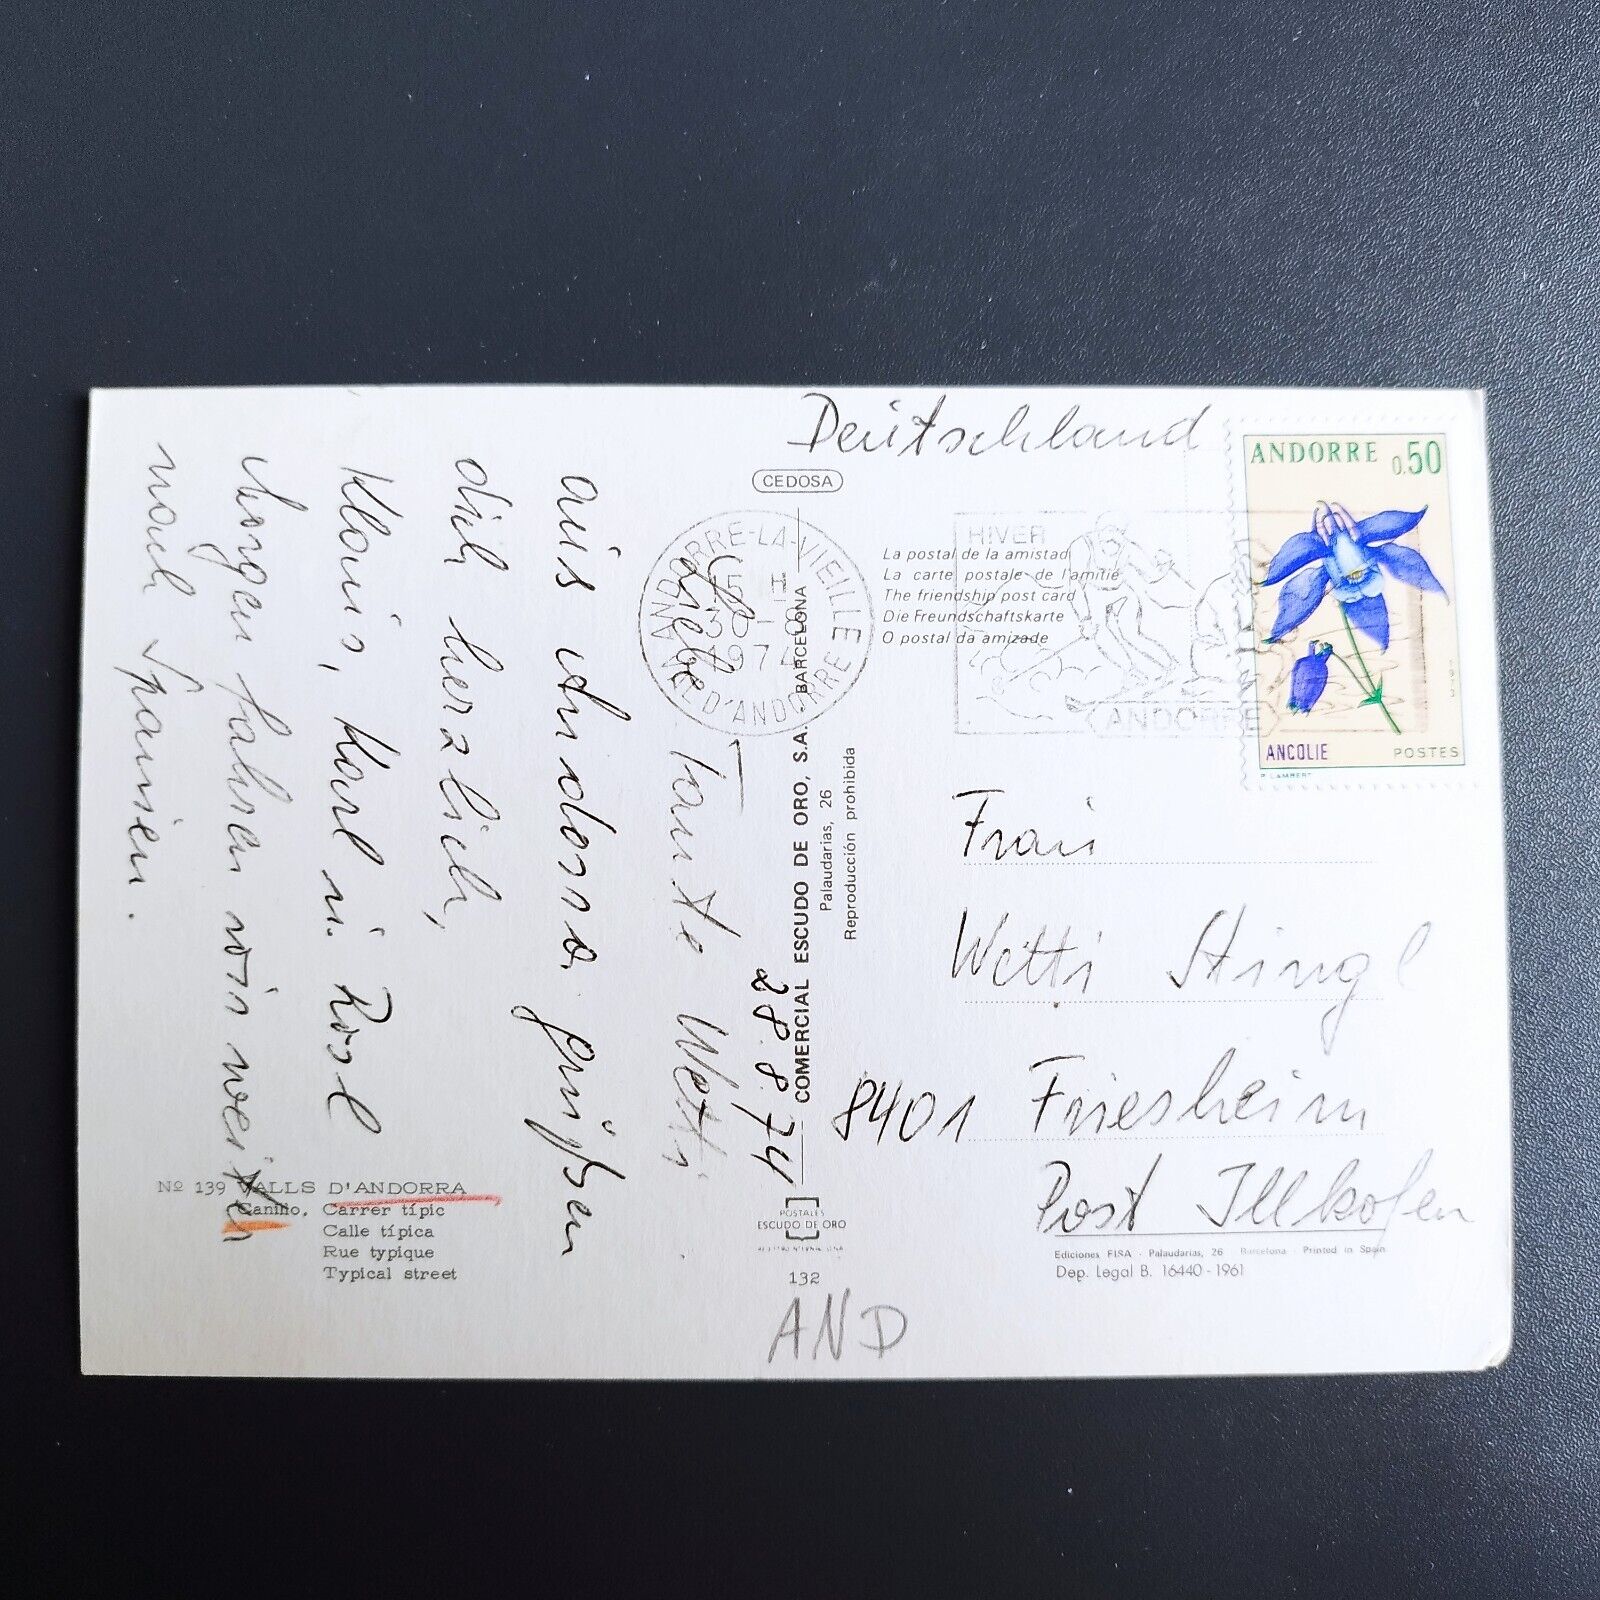 Deutschland
CEDOSA
ANDORRE 0.50
ANCOLIE POSTES
P. LAMBERT
ANDORRE-LA-VIEILLE
15 H
30 - 8
1974
VALLEES D'ANDORRE
HIVER
ANDORRE
La postal de la amistad
La carte postale de l'amitié
The friendship post card
Die Freundschaftskarte
O postal da amizade
28.8.74
Liebe Tante Wetti
aus Andorra grüßen
dich herzlich,
Klaus, Karl u. Rosl
Morgen fahren wir weiter
nach Spanien.
COMERCIAL ESCUDO DE ORO, S.A. - BARCELONA
Palaudarias, 26
Reproducción prohibida
Frau
Wetti Stingl
8401 Friesheim
Post Illkofen
Nº 139 VALLS D'ANDORRA
Canillo, Carrer típic
Calle típica
Rue typique
Typical street
POSTALES
ESCUDO DE ORO
132
Ediciones FISA - Palaudarias, 26 - Barcelona - Printed in Spain
Dep. Legal B. 16440 - 1961
AND